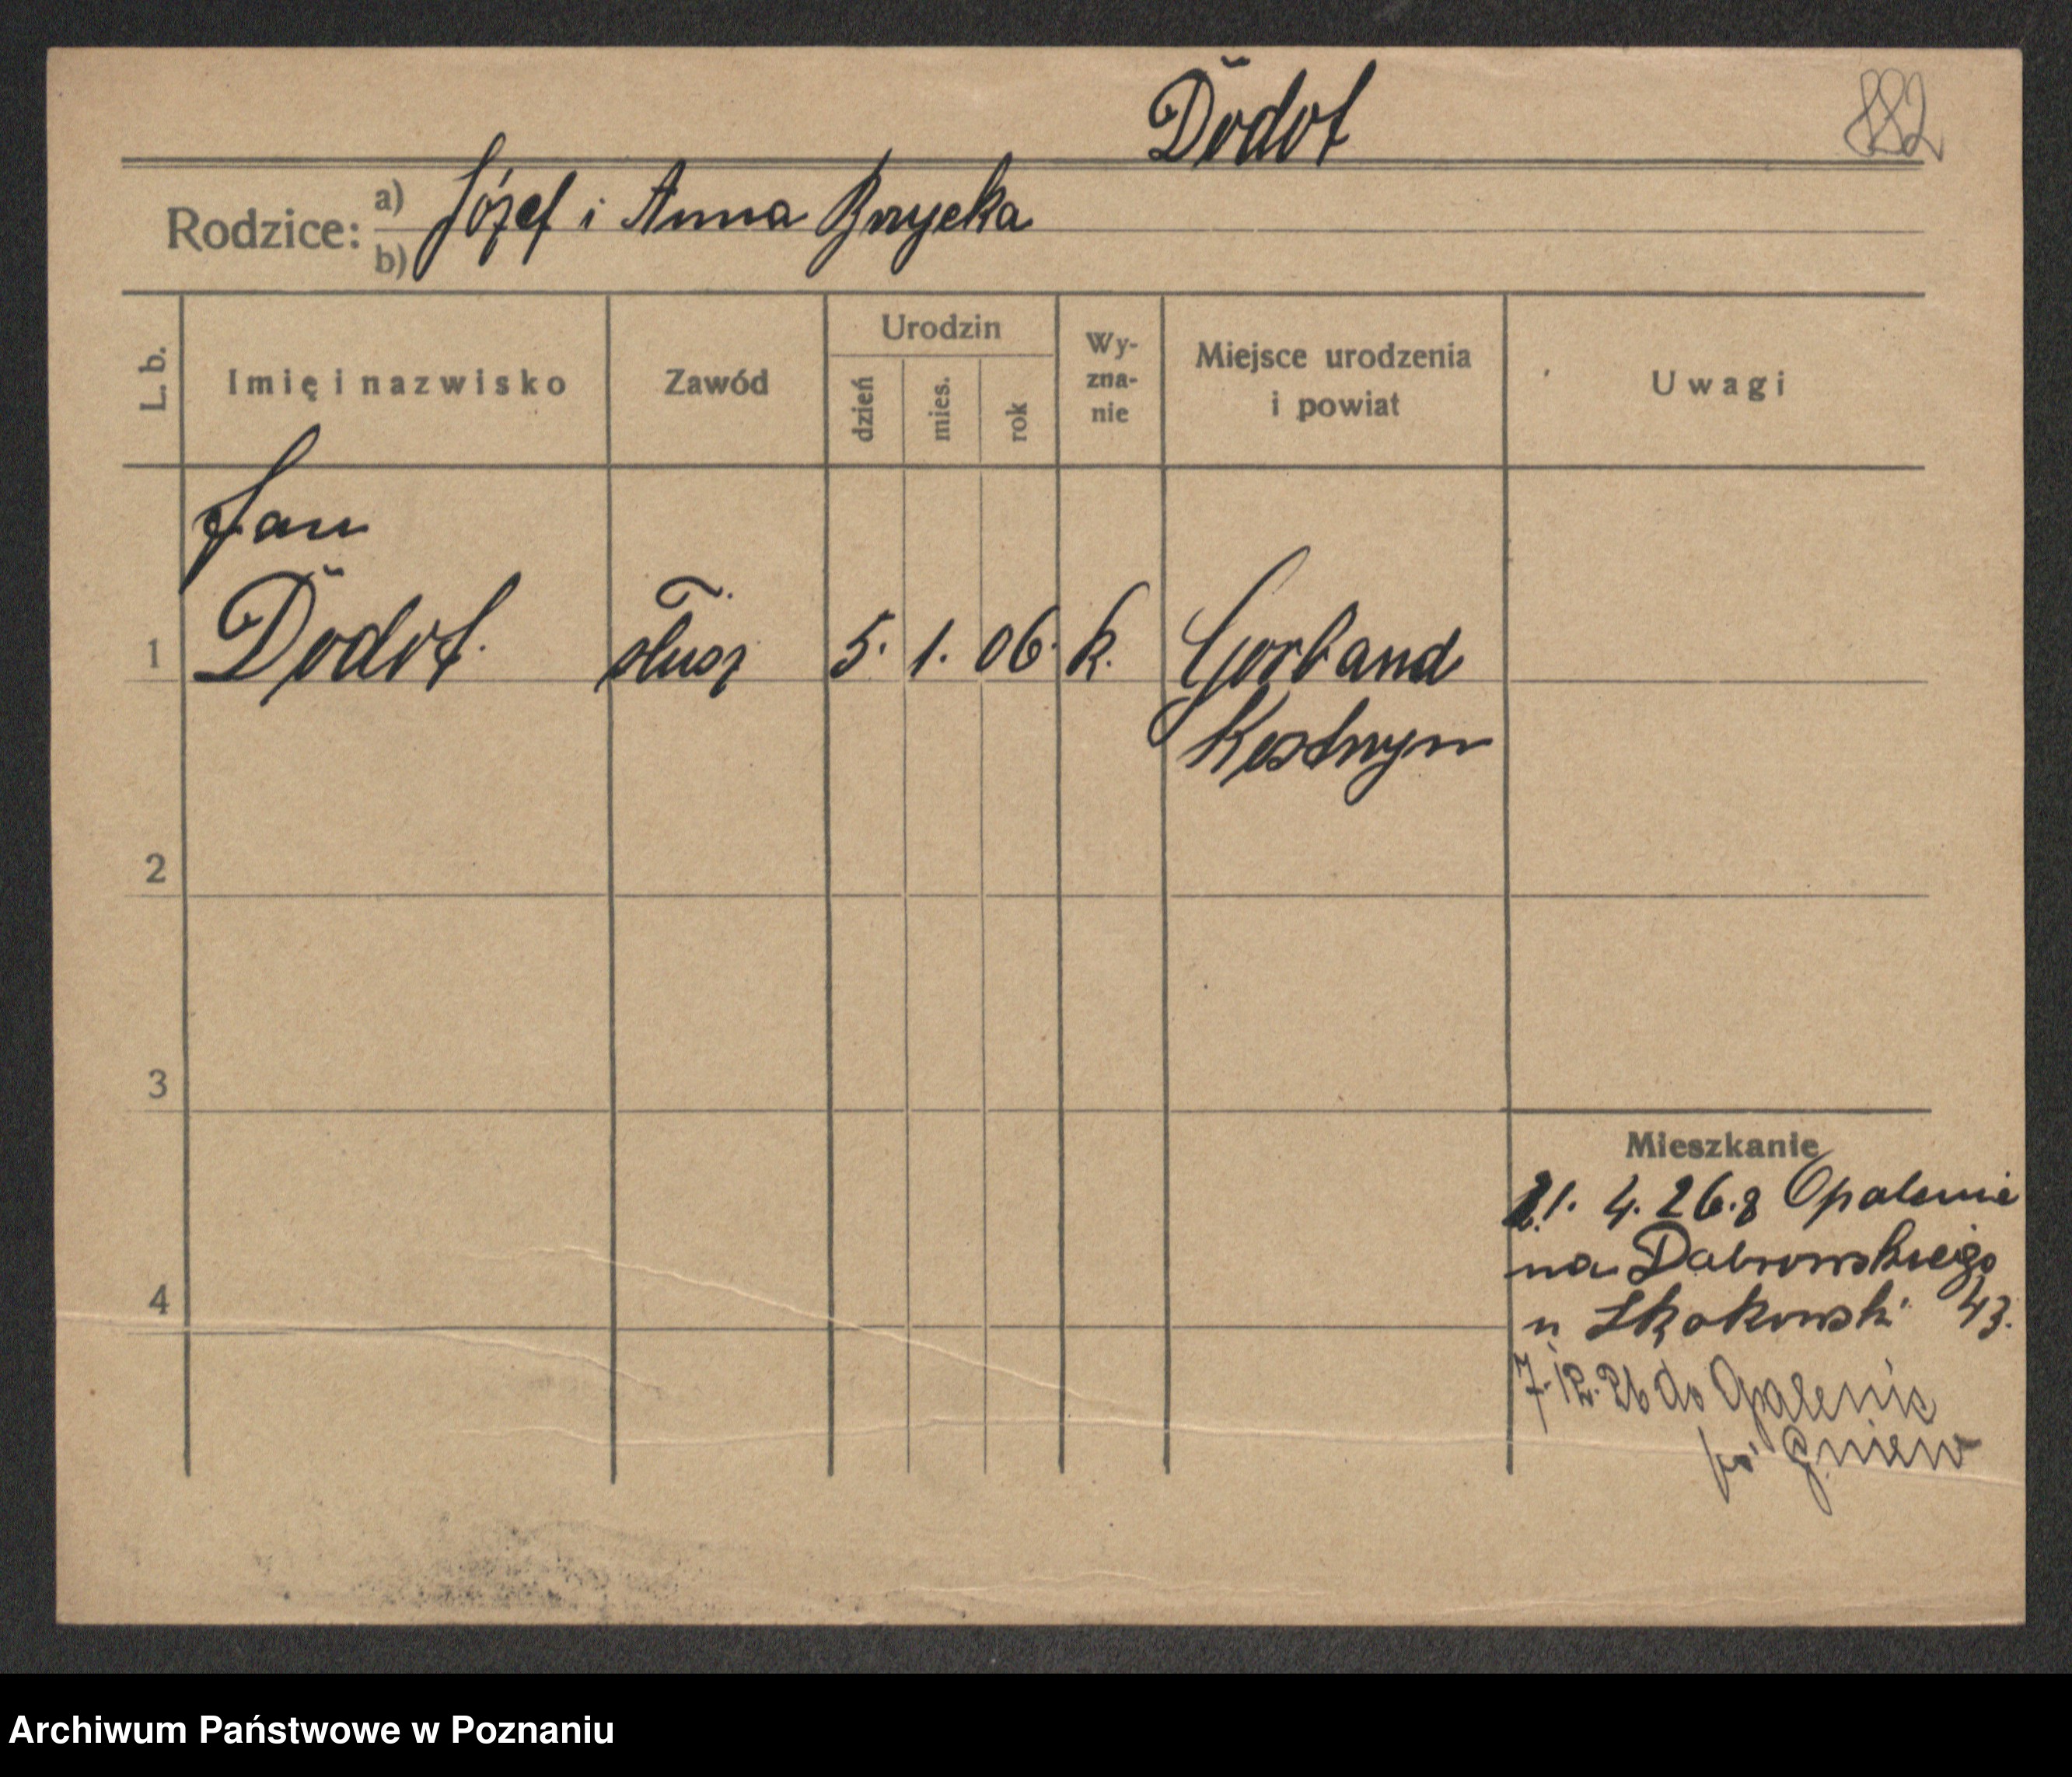 Dŏdot
882
Rodzice: a) b) Józef i Anna
L. b.
Imię i nazwisko
Zawód
Urodzin
dzień
mies.
rok
Wy-
zna-
nie
Miejsce urodzenia
i powiat
Uwagi
Jan
1 Dŏdot. 5. 1. 06. k. Gorband
Kostrzyn
2
3
4
Mieszkanie
21. 4. 26. z Opalenie
na Dabrowskiego
u Skokowski 43.
7.12.26 do Opalenic
Gniew
Archiwum Państwowe w Poznaniu